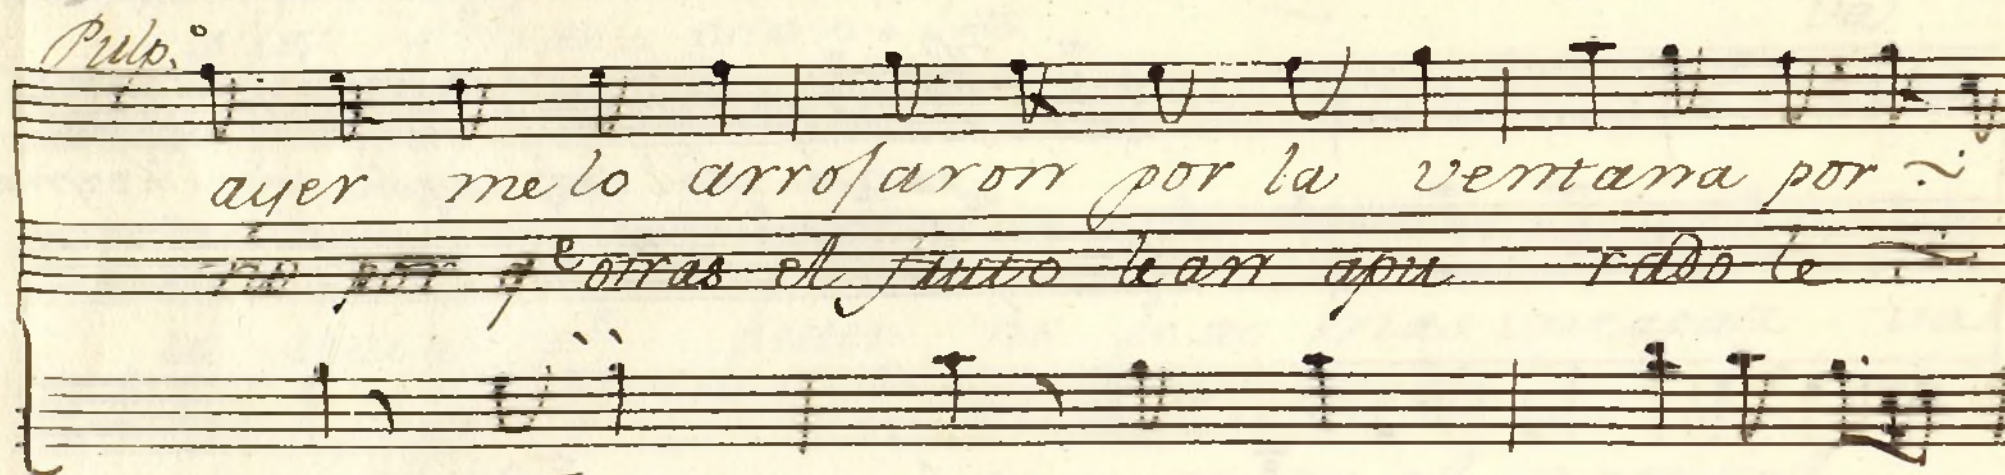 Pulp.º
ayer me lo arrojaron por la ventana por ~
no por q.e otras el juico le an apu rado le ~